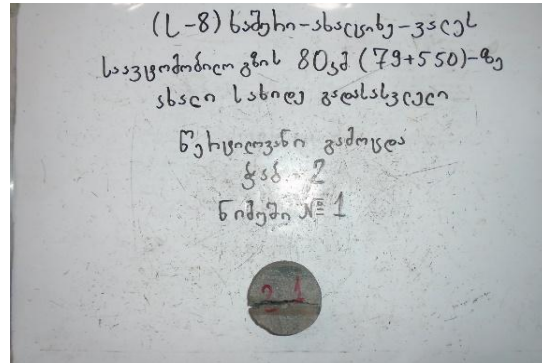 (ს-8) ხაშური-ახალციხე-ვალეს
საავტომობილო გზის 80კმ (79+550)-ზე
ახალი სახიდე გადასასვლელი
წერტილოვანი გამოცდა
ჭაბ. 2
ნიმუში № 1
2 1